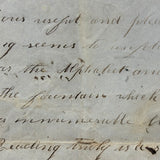 ious useful and plea
ng seems to
the Alphabet an
the fountain which
innumerable
Reading truly is a